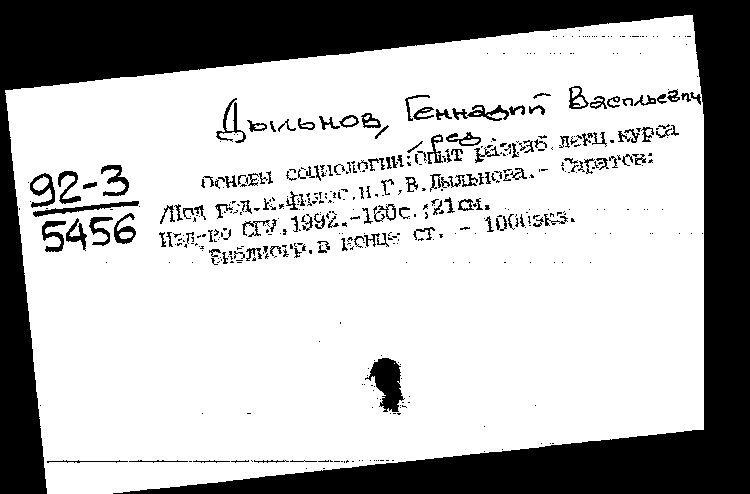 Дыльнов, Геннадий Васильевич
, ред.
92-3
5456
Основы социологии: Опыт разраб. лекц. курса
/Под ред. к. филос. н. Г. В. Дыльнова. - Саратов:
Изд-во СГУ, 1992. - 160с. ; 21см.
Библиогр. в конце ст. - 1000экз.